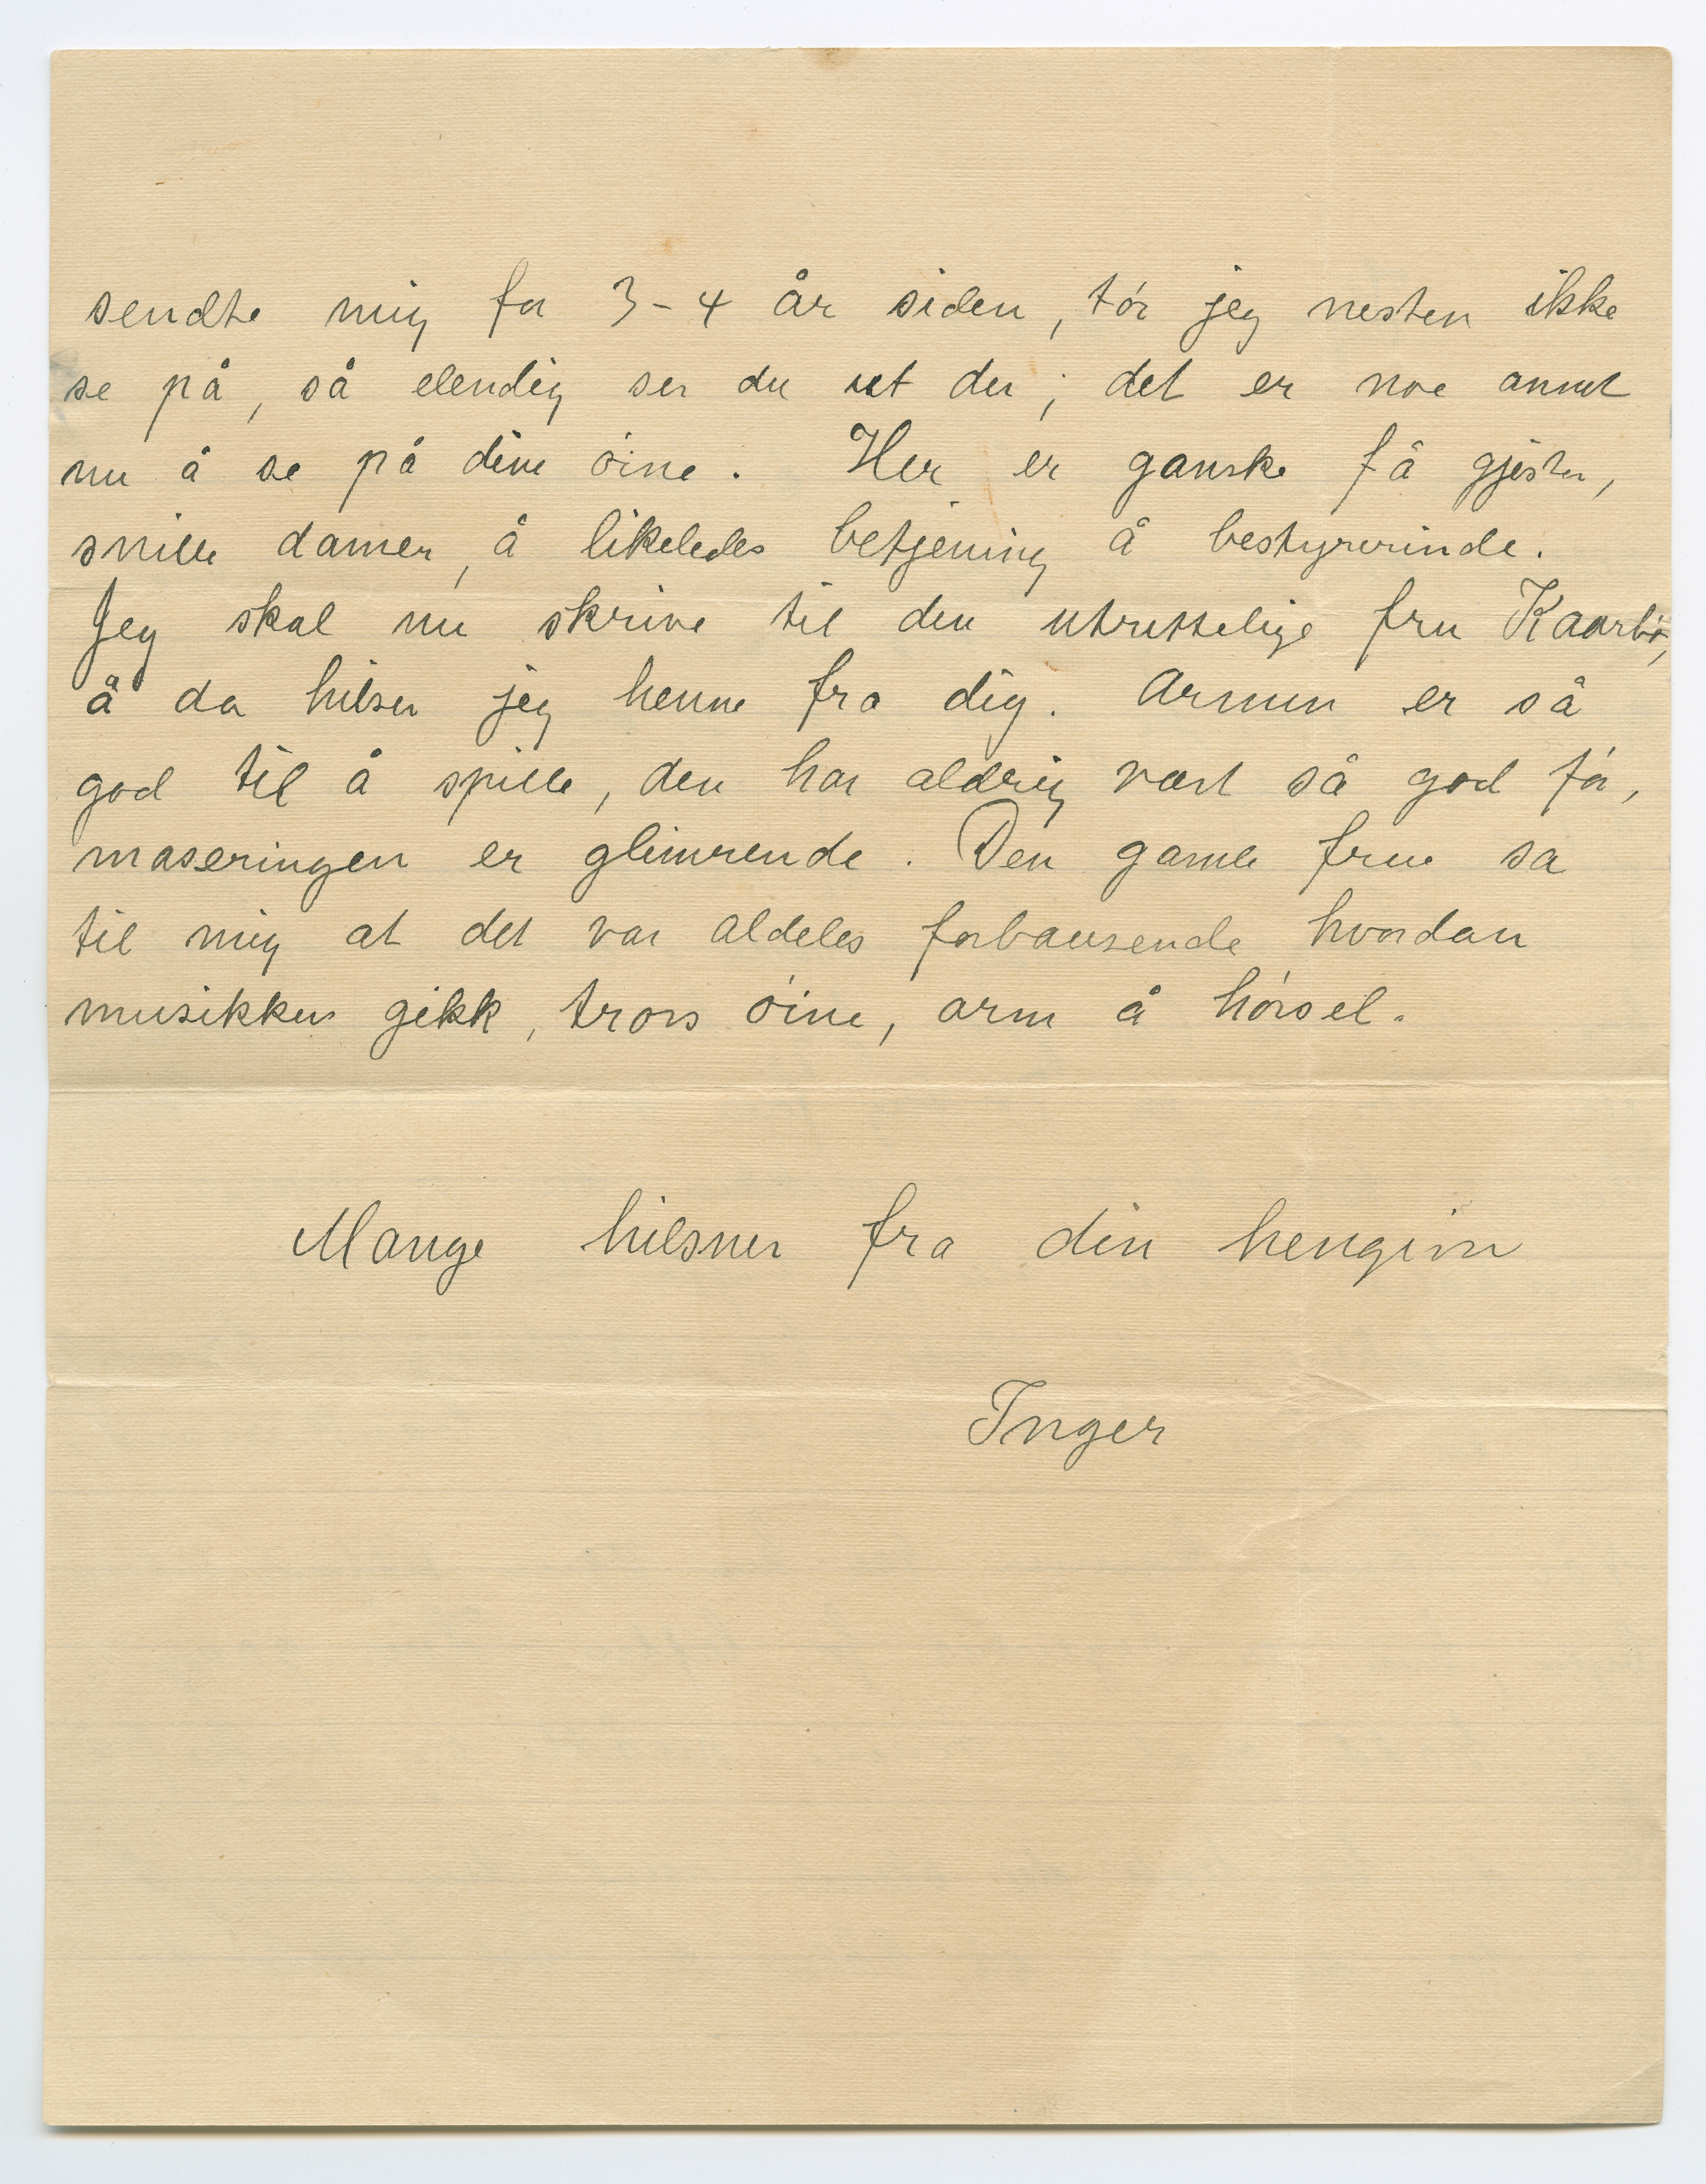 sendte mig for 3-4 år siden, tór jeg nesten ikke
se på, så elendig ser du ut der; det er noe annet
nu å se på dine óine. Her er ganske få gjester,
snille damer, å likeledes betjening å bestyrerinde.
Jeg skal nu skrive til den utrettelige fru Kaarbø,
å da hilser jeg henne fra dig. Armen er så
god til å spille, den har aldrig vært så god fór,
maseringen er glimrende. Den gamle frue sa
til mig at det var aldeles forbausende hvordan
musikken gikk, tross óine, arm å hórsel.
Mange hilsner fra din hengivne
Inger